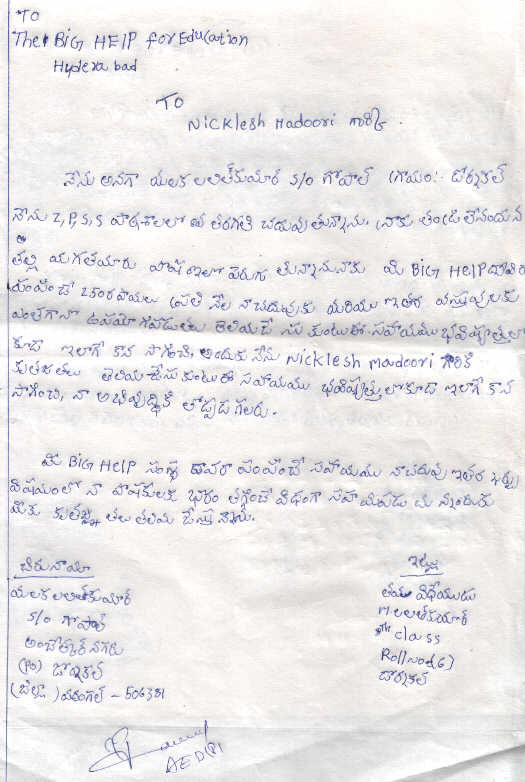 TO
The BIG HELP for Education
Hyderabad
TO
Nicklesh Madoori గారికి.
నేను అనగా యలక లలిత్‌కుమార్ S/o గోపాల్ గ్రామం:- డోర్నకల్
నేను Z,P,S,S పాఠశాలలో తరగతి చదువుతున్నాను. నాకు తండ్రి లేనందున
తల్లి పెరుగుతున్నాను నాకు మీ BIG HELP ద్వారా
పంపించే రూపాయలు ప్రతి నెల నా చదువుకు మరియు ఇతర వస్తువులకు
ఎంతగానో ఉపయోగపడుతు సహాయము భవిష్యత్తులో
కూడా ఇలాగే కొన సాగించి, అందుకు నేను Nicklesh Madoori గారికి
కృతజ్ఞతలు తెలియచేసుకుంటు ఈ సహాయము భవిష్యత్తులోకూడ ఇలాగే కొన
సాగించి, నా అభివృద్ధికి తోడ్పడగలరు.
మీ BIG HELP సంస్థ ద్వారా పంపించే సహాయము నా చదువు ఇతర ఖర్చు
విషయంలో నా పోషకులకు భారం తగ్గించే విధంగా సహాయపడుచున్నందుకు
మీకు కృతజ్ఞతలు
చిరునామా
యలక లలిత్‌కుమార్
S/o గోపాల్
అంబేత్కర్ నగరు
(PO) డోర్నకల్
(జిల్లా) వరంగల్ - 506381
ఇట్లు
తమ విధేయుడు
లలిత్‌కుమార్
class
Roll no
డోర్నకల్